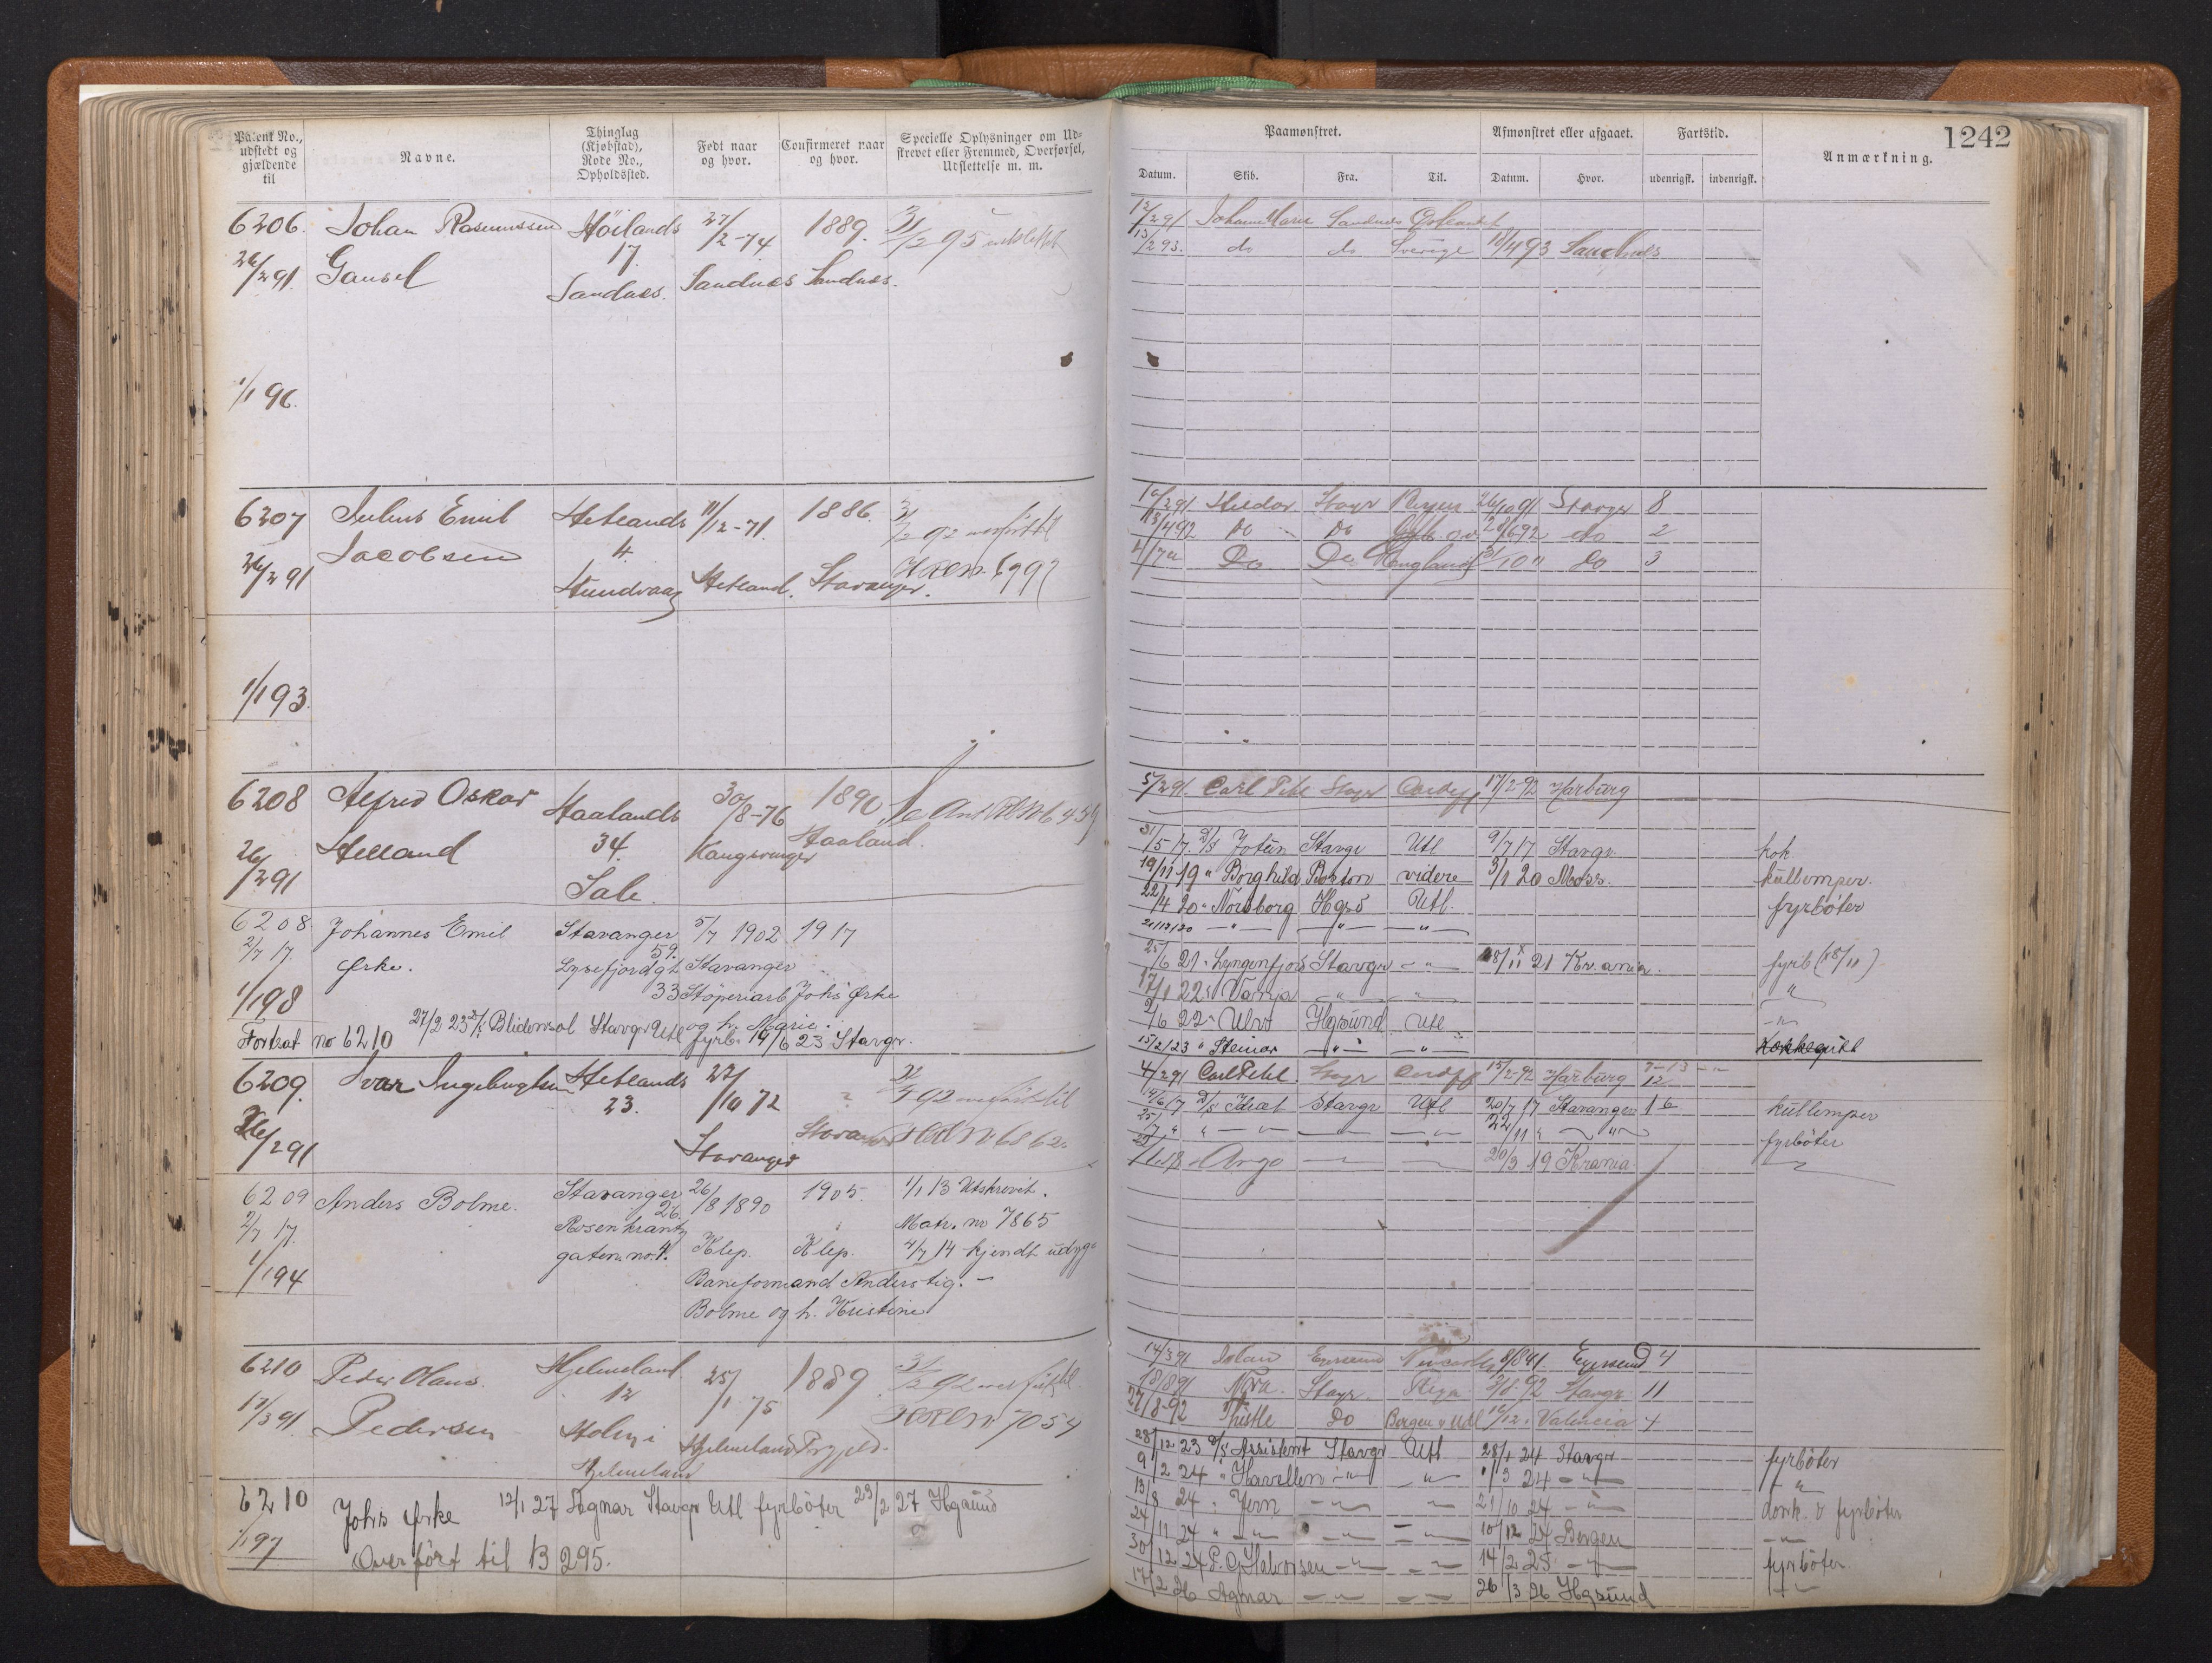 Patent No., udstedt og gjældende til
Navne.
Thinglag (Kjøbstad), Rode No., Opholdssted.
Født naar og hvor.
Confirmeret naar og hvor.
Specielle Oplysninger om Udstrevet eller Fremmed, Overførsel, Udslettelse m. m.
Paamønstret.
Afmønstret eller afgaaet.
Fartstid.
Anmærkning.
1242
Datum. Skib. Fra. Til. Datum. Hvor. udenrigsk. indenrigsk.
6206. Johan Rasmussen Höilands 27/2-74 1889. 31/12 95 udslettet
26/2 91 Gausel 17. Sandnæs. Sandnæs Sandnæs.
1/1 96.
12/2 91 Johanne Marie Sandnæs
13/2 93. do do Sverige 18/4 93 Sandnæs
6207 Julius Emil Hetlands 11/12-71. 1886. 31/12 92 overført til
26/2 91 Jacobsen 4. Hundvaag Hetland. Stavanger. 6992
1/1 93.
10/2 91 Heldor Stavgr 26/10 91 Stavgr 8
13/4 92 Do Do 28/6 92 do 2
4/7 " Do Do England 10 " Do 3
6208 Alfred Oskar Haalands 30/8-76 1890
26/2 91 Helland 34. Sale. Kongsvinger Haaland.
5/2 91. Carl Pihl Stavgr Cardiff 17/2-92 Harburg
6208 Johannes Emil Stavanger 5/7 1902 1917
2/7 17. Ørke. 59. Lysefjordgt. Stavanger
1/1 98 33 Støperiarb. Johs Ørke
og h. Marie.
Fortsat no 6210 27/2 23 D/S Blidensol Stavgr Utl fyrb. 19/6 23 Stavgr.
31/5 17. D/S Jotun Stavgr Utl 9/7 17 Stavgr. kok
19/11 19 " Borghild Boston videre 3/1 20 Moss. kullemper.
22/4 20 " Nordborg Hgsd Utl. fyrbøter
21/12/20 — " — — " — — " —
25/6 21 " Lyngenfjord Stavgr — " — 18/11 21 Kr.ania. fyrb (18/11)
17/1 22 " Vanja — " — " "
2/6 22 " Ulv Hgsund Utl — " —
15/2/23 " Steinar — " — — " — Kokkegutt
6209. Ivar Ingebrigtsen Hetlands 27/10 72 92 overført til
26/2 91 23. Stavanger Stavanger 6862
4/2 91 Carl Pihl. Stavgr Cardiff 17/2-92 Harburg 12
6209 Anders Bolme. Stavanger 26/8 1890 1905. 1/1 13 Utskrevet.
2/7 17. 26. Rosenkrantz gaten no 4. Klep. Klep. Matr. no 7865
1/1 94 4/7 14 kjendt udygtig. —
Baneformand Anders
Bolme og h. Kristine
14/6 17 D/S Idræt Stavgr Utl 20/7 17 Stavanger 1 6 kullemper
25/7 " " — " — 22/11 " — " — fyrbøter
1 18 " Argo 20/3 19 Krania
6210 Peder Olaus Hjelmeland 25/1 75 1889. 31/12 92 overført til
17/3 91 Pedersen 12 Holm i Hjelmeland Hjelmeland 7054
14/3 91 Egersund Newcastle 8/8 91. Egersund 4
18/8 91 Nora. Stavgr. Riga 3/8 92 Stavgr. 11
27/8-92 Thistle Do Bergen & Utl 16/12 " Valencia 4
6210 Johs Ørke 12/1 27 Agnar Stavgr Utl fyrbøter 23/2 27 Hgsund
1/1 97 Overført til B 295.
28/12 23 D/S Assistent Stavgr Utl 28/1 24 Stavgr fyrbøter
9/2 24 " Havellen — " — — " — 1/3 24 — " — — " —
13/8 24 " Jern — " — — " — 21/10 24 — " — donk. & fyrbøter
24/11 24 " — " — — " — — " — 10/12 24 Bergen — " —
30/12 24 P. G. Halvorsen — " — — " — 14/2 25 — " — fyrbøter
17/2 26 Agnar — " — — " — 26/3 26 Hgsund — " —